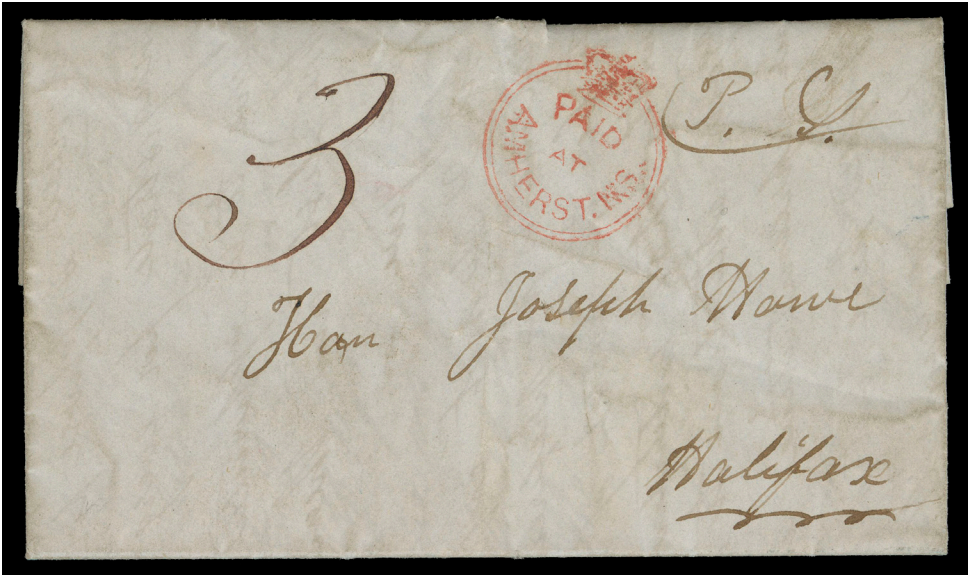 3
PAID
AT
AMHERST. N.S.
Hon Joseph Howe
Halifax